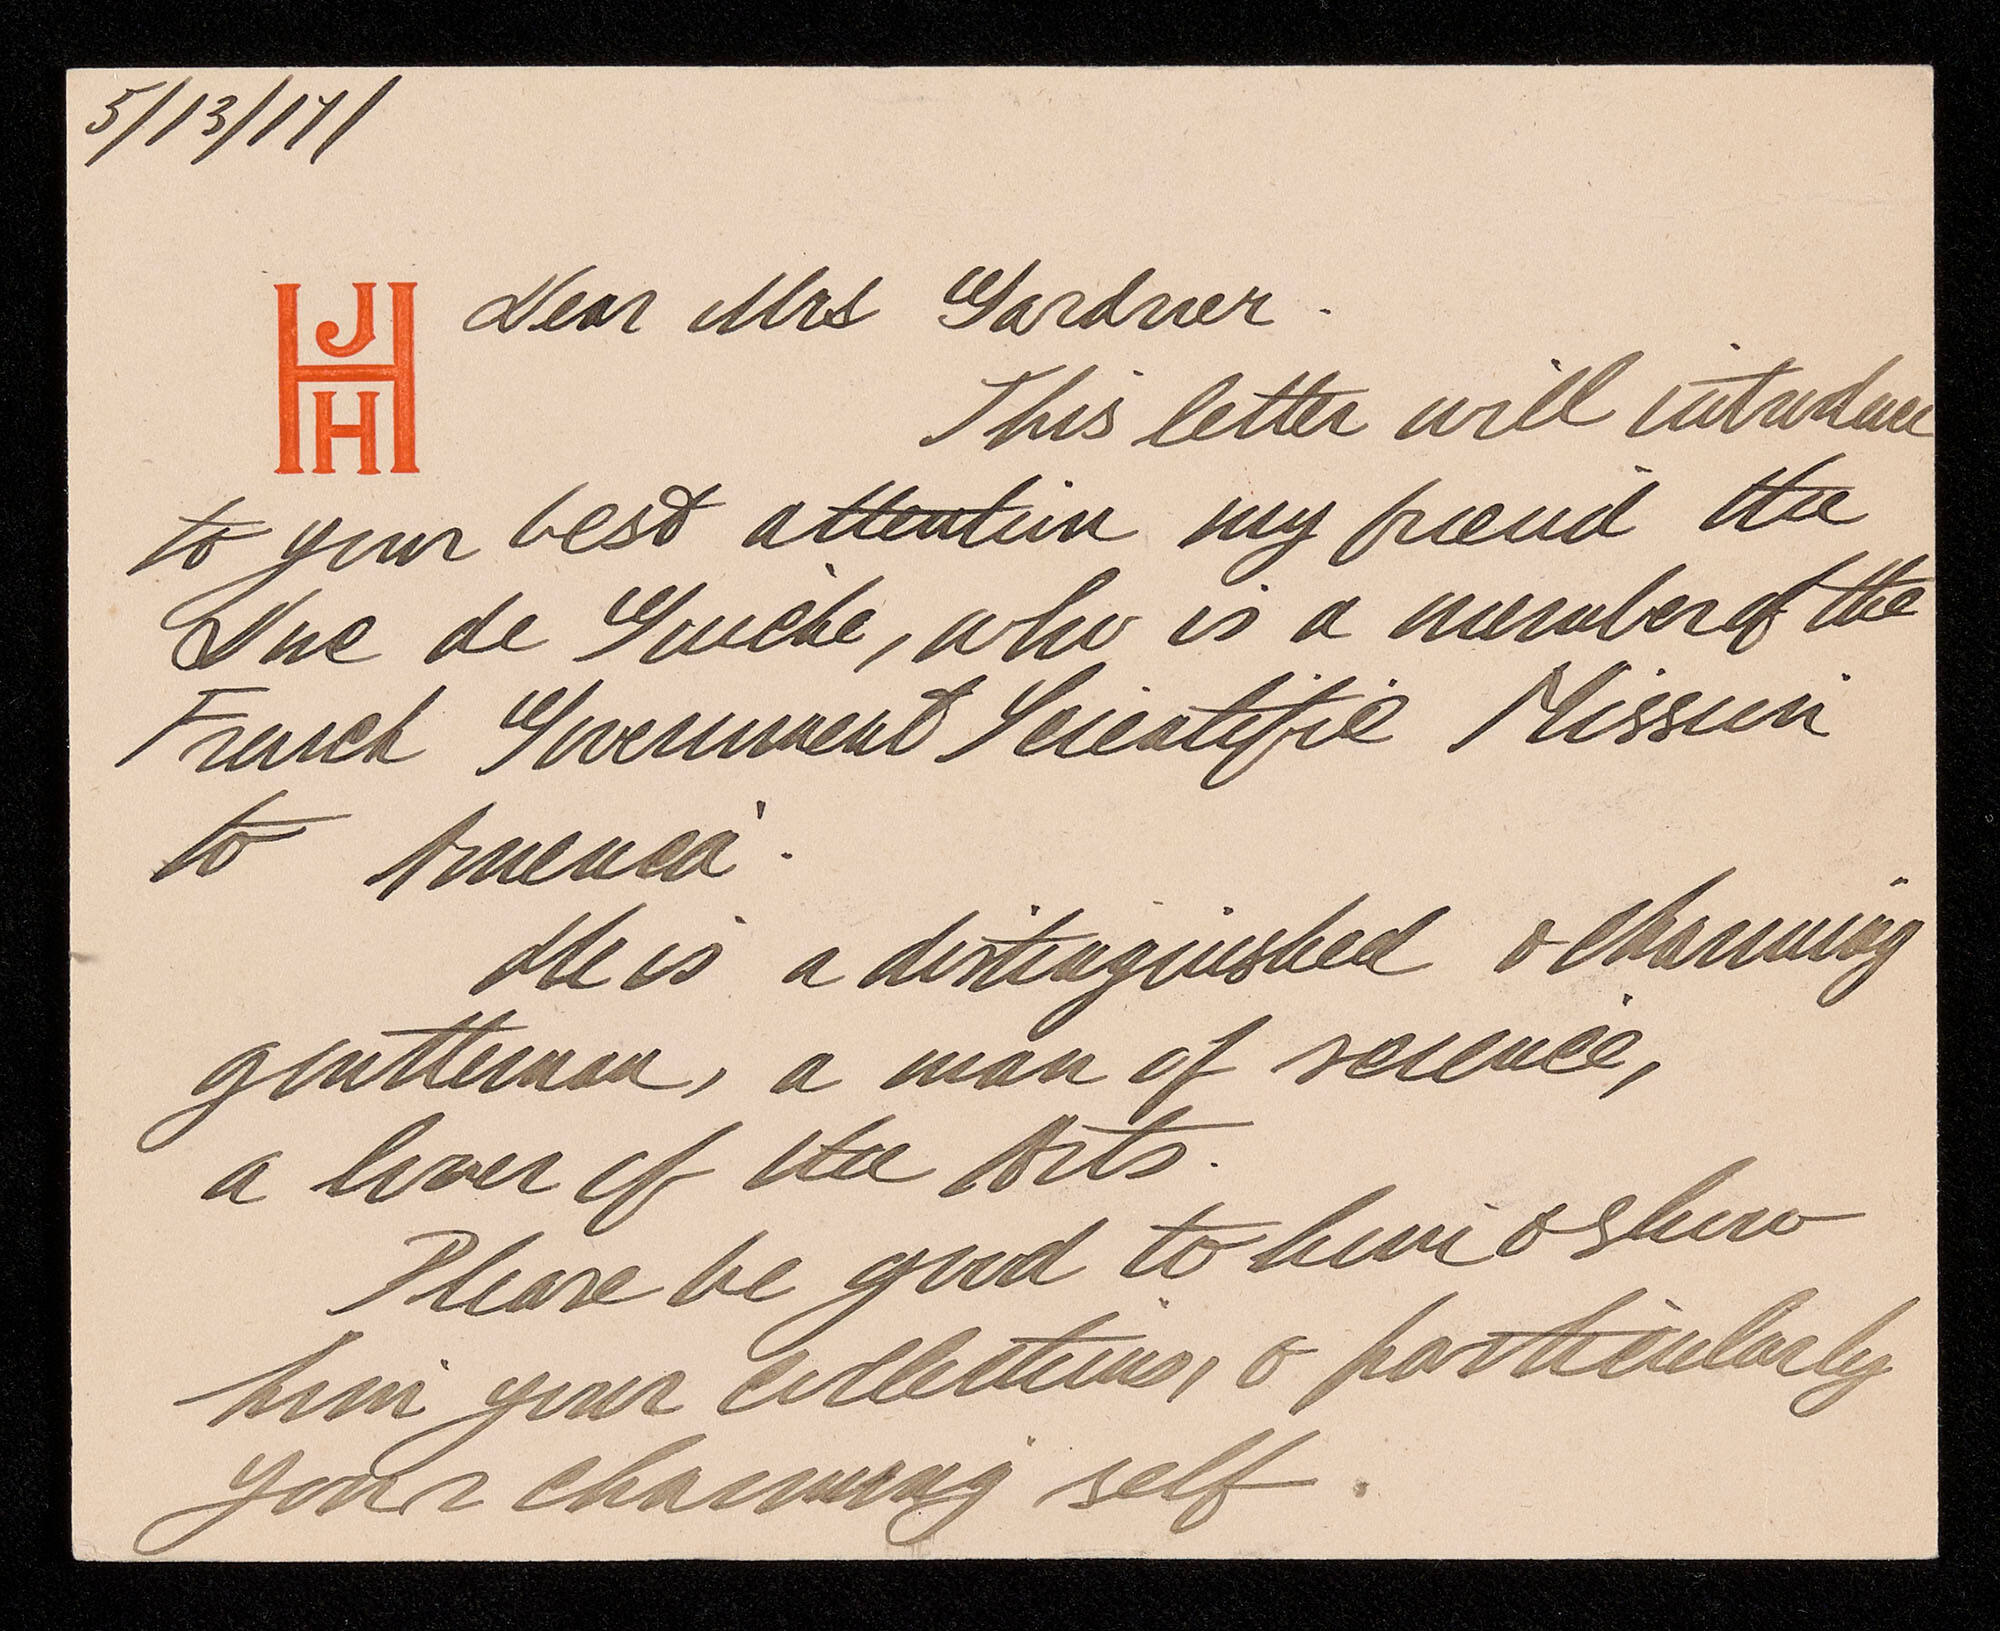 5/13/17/
HJH
Dear Mrs Gardner.
This letter will introduce
to your best attention my friend the
Duc de Guiche, who is a member of the
French Government Scientific Mission
to America.
He is a distinguished & charming
gentleman, a man of science,
a lover of the Arts.
Please be good to him & show
him your collections, & particularly
your charming self.